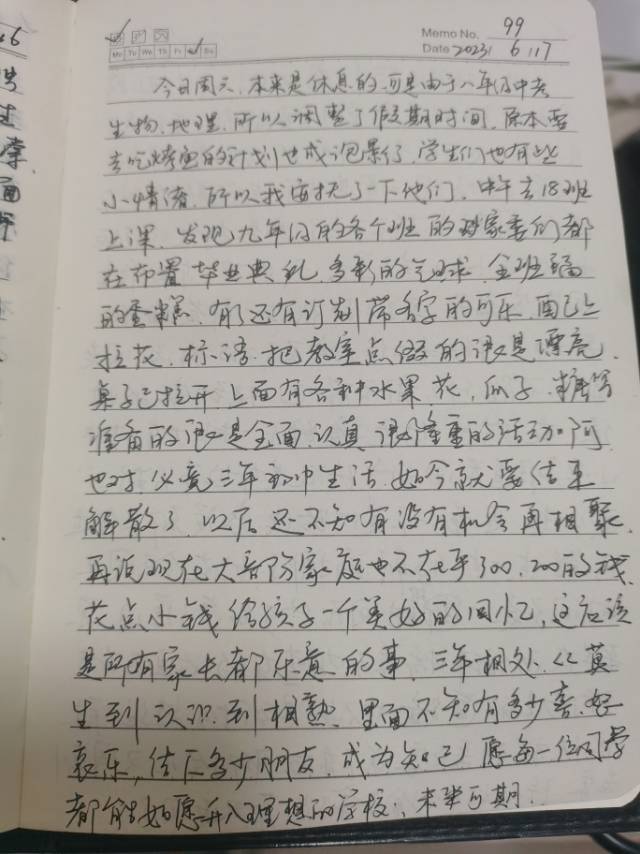 Memo No. 99
Mo Tu We Th Fr Sa Su
Date 2023 / 6 / 17
今日周六,本来是休息的,可是由于八年级中考
生物、地理,所以调整了假期时间,原本要
去吃烤鱼的计划也成泡影了,学生们也有些
小情绪,所以我安抚了一下他们,中午去18班
上课,发现九年级的各个班的家委们都
在布置毕业典礼,多彩的气球,全班福
的蛋糕,有的还有订制带名字的可乐,配上
拉花,标语,把教室点缀的很是漂亮,
桌子已拉开,上面有各种水果,花,瓜子,糖等
准备的很是全面,认真,很隆重的活动啊,
也对,必竟三年初中生活,如今就要结束
解散了,以后还不知有没有机会再相聚,
再说现在大部份家庭也不在乎300、200的钱,
花点小钱给孩子一个美好的回忆,这应该
是所有家长都乐意的事,三年相处,从莫
生到认识到相熟,里面不知有多少喜、好
哀乐,结下多少朋友,成为知己,愿每一位同学
都能如愿升入理想的学校,未来可期.